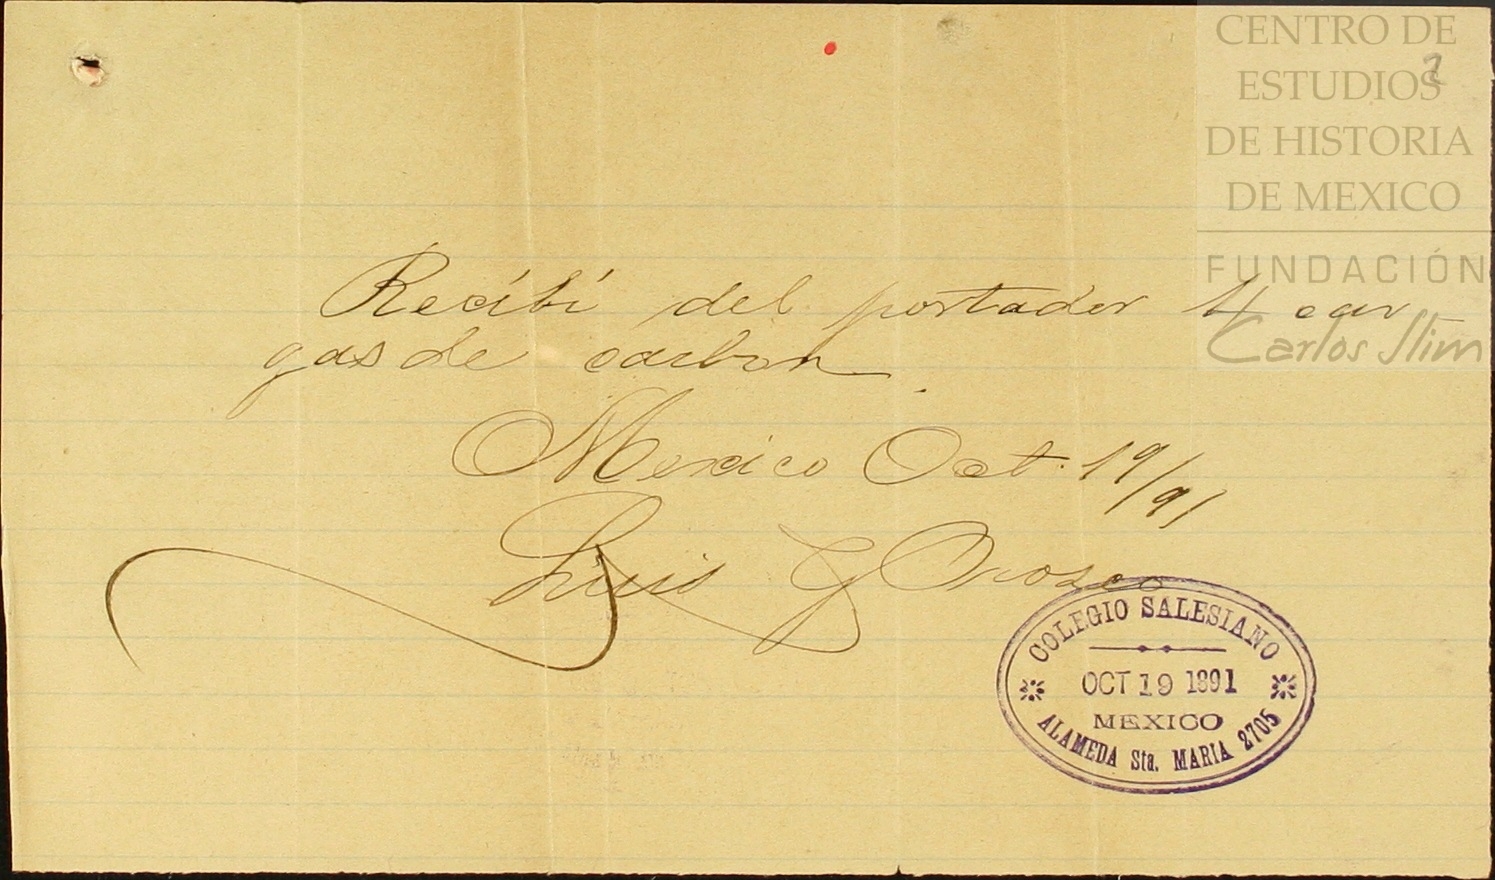 CENTRO DE
ESTUDIOS
DE HISTORIA
DE MEXICO
FUNDACIÓN
Carlos Slim
Recíbí del portador 4 car
gas de carbon.
Mexico Oct. 19/91
Luis G Orozco
COLEGIO SALESIANO
OCT 19 1891
MEXICO
ALAMEDA Sta. MARIA 2705